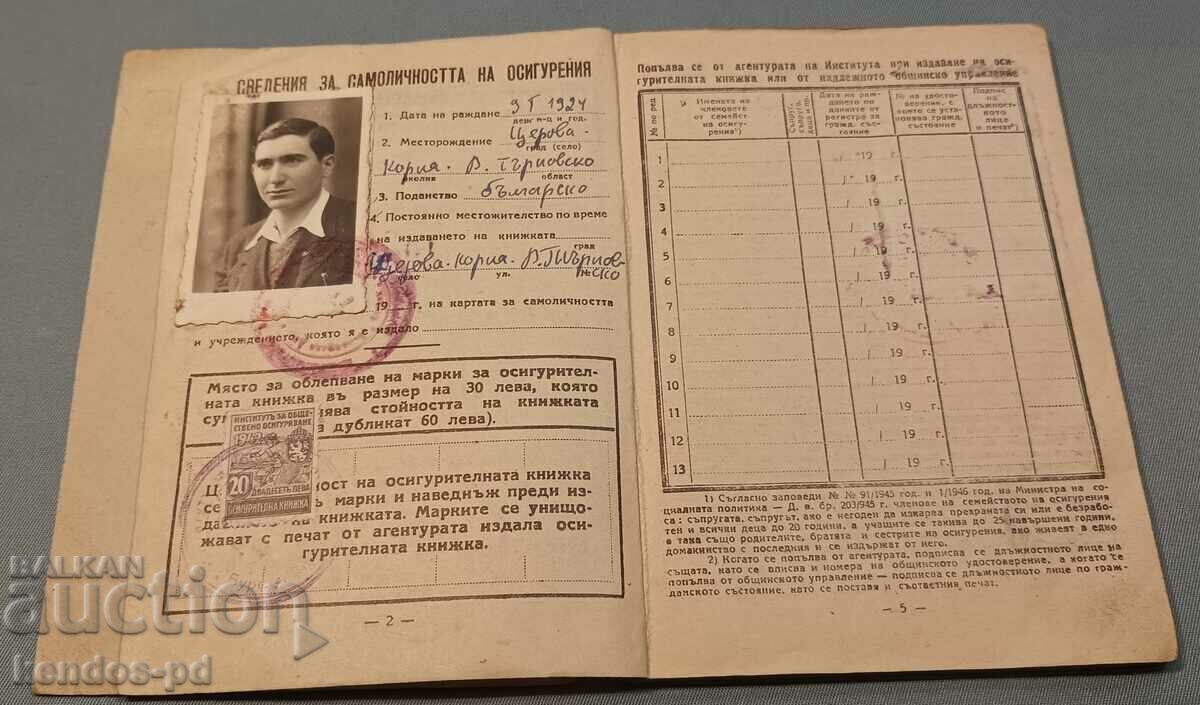 СВЕДЕНИЯ ЗА САМОЛИЧНОСТТА НА ОСИГУРЕНИЯ
1. Дата на раждане 9 I 1924
ден м-ц и год.
2. Месторождение Церова-
град (село)
кория - В. Търновско
околия област
3. Поданство българско
4. Постоянно местожителство по време
на издаването на книжката
град
Церова-кория-В. Търнов-
ско
село ул. №
19 г. на картата за самоличността
и учреждението, която я е издало
Място за облепване на марки за осигурител-
ната книжка въ размер на 30 лева, която
стойността на книжката
дубликат 60 лева).
ИНСТИТУТЪ ЗА ОБЩЕ-
СТВЕНО ОСИГУРЯВАНЕ
1942
20 ДВАДЕСЕТЬ ЛЕВА
ОСИГУРИТЕЛНА КНИЖКА
на осигурителната книжка
марки и наведнъж преди из-
на книжката. Марките се унищо-
жават с печат от агентурата издала оси-
гурителната книжка.
— 2 —
Попълва се от агентурата на Института при издаване на оси-
гурителната книжка или от надлежното общинско управление
№ по ред
Имената на
членовете
от семейст.
на осигу-
рения¹)
Съпруг,
съпруга,
деца и др.
Дата на раж-
дането по
данните от
регистра за
гражд. със-
тояние
№ на удосто-
верение, с
което се уста-
новява гражд.
състояние
Подпис
на
длъжност-
ното лице
и печат²)
1 / 19 г.
2 / 19 г.
3 / 19 г.
4 / 19 г.
5 / 19 г.
6 / 19 г.
7 / 19 г.
8 / 19 г.
9 / 19 г.
10 / 19 г.
11 / 19 г.
12 / 19 г.
13 / 19 г.
1) Съгласно заповеди № № 91/1945 год. и 1/1946 год. на Министра на со-
циалната политика — Д. в. бр. 203/945 г. членове на семейството на осигурения
са: съпругата, съпругът, ако е негоден да изкарва прехраната си или е безрабо-
тен и всички деца до 20 години, а учащите се такива до 25 навършени години,
а така също родителите, братята и сестрите на осигурения, ако живеят в едно
домакинство с последния и се издържат от него.
2) Когато се попълва от агентурата, подписва се длъжностното лице на
същата, като се вписва и номера на общинското удостоверение, а когато се
попълва от общинското управление — подписва се длъжностното лице по граж-
данското състояние, като се поставя и съответния печат.
— 5 —
BALKAN
auction
kendos-pd